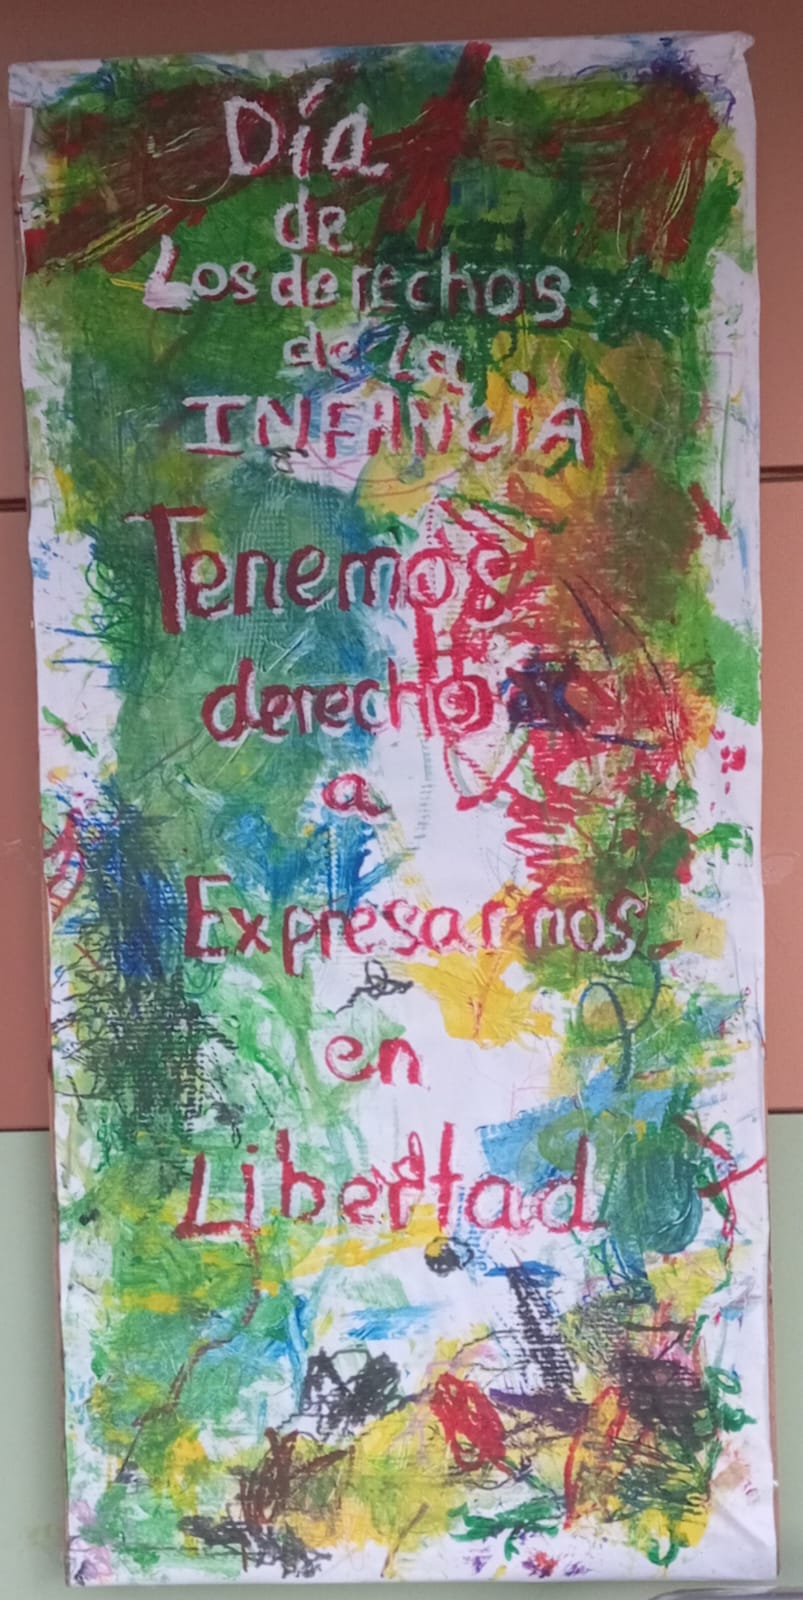 Día
de
Los derechos
de la
INFANCiA
Tenemos
derecho
a
Expresarnos
en
Libertad